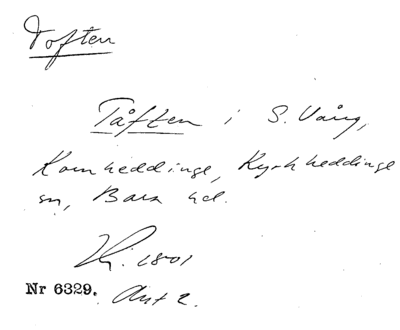 Toften
Tåften i S. Vång,
Kornheddinge, Kyrkheddinge
sn, Bara hd.
1801
Nr 6329. Akt 2.